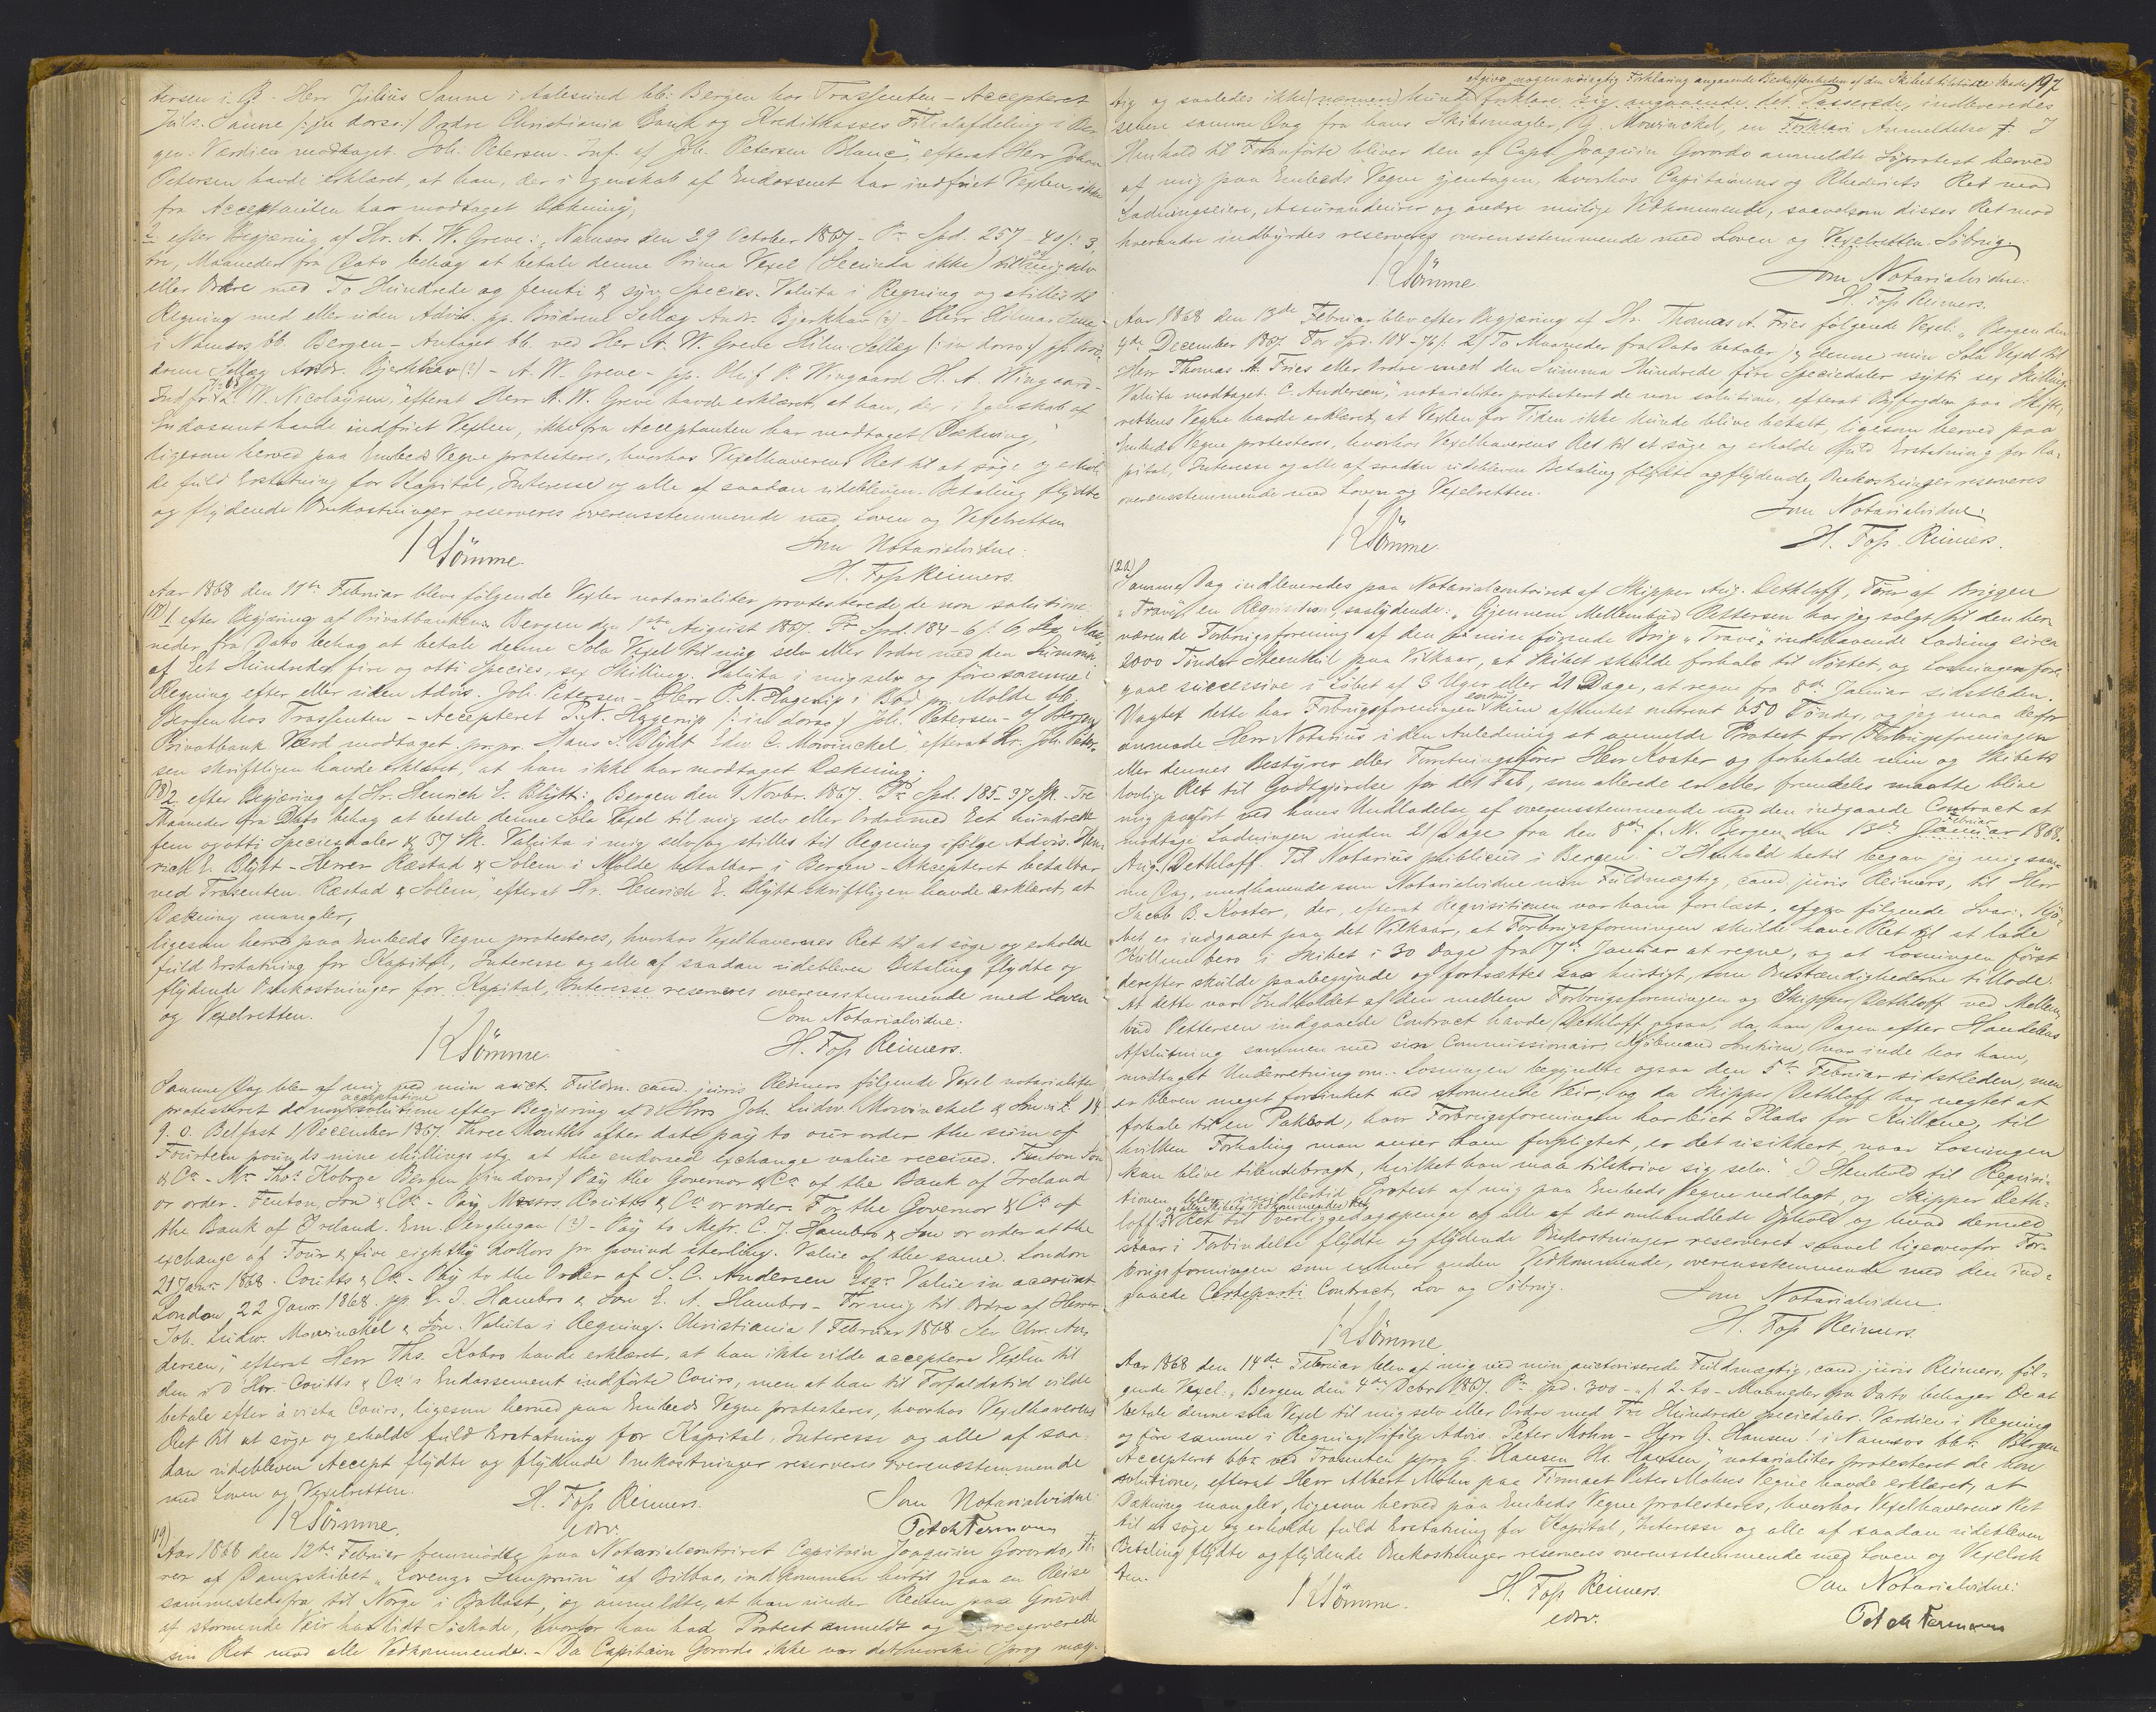 tersen i B. Herr Julius Sanne i Aalesund bb: Bergen hos Trassenten - Accepteret
Juls. Sanne /: in dorso:/ Ordre Christiania Bank og Kreditkasses Filialafdeling i Ber
gen. Værdien modtaget. Joh. Petersen. Inf. af Joh. Petersen Blanc", efterat Herr Johan
Petersen havde erklæret, at han, der i Egenskab af Endossent har indfriet Vexlen, ikke
fra Acceptanten har modtaget Dækning,
2 efter Begjæring af Hr. A. W. Greve: "Namsos den 29 October 1867 - Pr Spd. 257 - 40 /: 3
tre, Maaneder fra Dato behag at betale denne Prima Vexel (Secunda ikke) til mig selv
eller Ordre med To Hundrede og femti & syv Species. Valuta i Regning og stilles til
Regning med eller uden Advis. pp. Brødrene Sellæg Andr. Bjerkhav (?) - Herr Hilmar Sellæg
i Namsos, bb. Bergen - Antaget bb. ved Her A. W. Greve Hilm. Sellæg (: in dorso:/ pp. Brø-
drene Sellæg Andr. Bjerkhav (?) - A. W. Greve - pp. Oluf P. Wingaard H. A. Wingaard -
Indfr. W. Nicolaysen", efterat Herr A. W. Greve havde erklæret, at han, der i Egenskab af
Endossent havde indfriet Vexlen, ikke fra Acceptanten har modtaget Dækning,
ligesom herved paa Embeds Vegne protesteres, hvorhos Vexelhaverens Ret til at søge og erhol-
de fuld Erstatning for Kapital, Interesse og alle af saadan udebleven Betaling flydte
og flydende Omkostninger reserveres overensstemmende med Loven og Vexelretten
Som Notarialvidne:
K Sömme. H. Foss Reimers.
Aar 1868 den 11te Februar bleve følgende Vexler notarialiter protesterede de non solutione:
(18) 1 efter Begjæring af Privatbanken: Bergen den 1ste August 1867. Pr Spd. 184 - 6 /: 6, Sex Maa-
neder fra Dato behag at betale denne Sola Vexel til mig selv eller Ordre med den Summa
af Eet Hundrede fire og otti Species, sex Skilling. Valuta i mig selv og före samme i
Regning efter eller uden Advis. Joh. Petersen - Herr P. N. Hagerup i Bod pr. Molde bb.
Bergen hos Trassenten - Accepteret P. N. Hagerup /: in dorso :/ Joh. Petersen - of Bergens
Privatbank Værd modtaget. pr. pr. Hans S. Blydt Edw. C. Mowinckel", efterat Hr. Joh. Peter-
sen skriftligen havde erklæret, at han ikke har modtaget Dækning;
(18) 2 efter Begjæring af Hr. Henrich E. Blytt: "Bergen den 9 Novbr. 1867. Pr Spd. 185 - 37 Sk. - Tre
Maaneder fra Dato behag at betale denne Sola Vexel til mig selv eller Ordre med Eet hundrede
fem og otti Speciesdaler & 37 Sk. Valuta i mig selv og stilles til Regning ifølge Advis. Hen-
rich E. Blytt - Herrer Ræstad & Solem i Molde betalbar i Bergen - Accepteret betalbar
ved Trassenten. Ræstad & Solem", efterat Hr. Henrich E. Blytt skriftligen havde erklæret, at
Dækning mangler,
ligesom herved paa Embeds Vegne protesteres, hvorhos Vexelhavernes Ret til at søge og erholde
fuld Erstatning for Kapital, Interesse og alle af saadan udebleven Betaling flydte og
flydende Omkostninger for Kapital, Interesse reserveres overensstemmende med Loven
og Vexelretten. Som Notarialvidne:
K Sömme. H. Foss Reimers.
Samme Dag blev af mig ved min auct. Fuldm. cand. juris Reimers følgende Vexel notarialiter
protesteret de non acceptatione solutione efter Begjæring af d'Hrr Joh. Ludw. Mowinckel & Søn: £ 14
9. 0. Belfast 1 December 1867. Three Months after date pay to our order the sum of
Fourteen pounds nine shillings stg. at the endorsed exchange value received. Fenton Son
& Co. - Mr. Thos. Kobroe Bergen /: in dorso :/ Pay the Governor & Co. of the Bank of Ireland
or order. Fenton, Son & Co. - Pay Messrs. Coutts & Co or order. For the Governor & Co of
the Bank of Ireland. Em. Geoghegan (?) - Pay to Messr. C. J. Hambro & Son or order at the
exchange of Four & five eighths dollars pr. pound sterling. Value of the same. London
21 Janr. 1868. Coutts & Co. - Pay to the Order of S. C. Andersen Esqr. Value in account
London, 22 Janr. 1868. pp. C. J. Hambro & Son E. A. Hambro - For mig til Ordre af Herrer
Joh. Ludw. Mowinckel & Søn. Valuta i Regning. Christiania 1 Februar 1868 Sev. Chr. An-
dersen", efterat Herr Ths. Kobro havde erklæret, at han ikke vilde acceptere Vexlen til
den i d'Hrr. Coutts & Co's Endossement indførte Cours, men at han til Forfaldstid vilde
betale efter à vista Cours, ligesom herved paa Embeds Vegne protesteres, hvorhos Vexelhaverens
Ret til at søge og erholde fuld Erstatning for Kapital, Interesse og alle af saa-
dan udebleven Accept flydte og flydende Omkostninger reserveres overensstemmende
med Loven og Vexelretten. H. Foss Reimers. Som Notarialvidne:
K Sömme.
(19)
Aar 1868 den 12te Februar fremmødte paa Notarialcontoiret Capitain Joaquin Gorordo, Fø-
rer af Dampskibet "Lorenzo" af Bilbao, indkommen hertil paa en Reise
sammestedsfra til Norge i Ballast, og anmeldte, at han under Reisen paa Grund
af stormende Veir har lidt Søskade, hvorfor han had Protest anmeldt og reserverede
sin Ret mod alle Vedkommende. - Da Capitain Gorordo ikke var det norske Sprog mæg-
afgive nogen nöiagtig Forklaring angaaende Beskaffenheden af den Skibet tilstødte Skade 197
tig og saaledes ikke (nærmere) kunde forklare sig angaaende det Passerede, indleveredes
senere samme Dag fra hans Skibsmægler, Mowinckel, en Forklari Anmeldelse. I
Henhold til Foranførte bliver den af Capt. Joaquin Gorordo anmeldte Søprotest herved
af mig paa Embeds Vegne gjentagen, hvorhos Capitainens og Rhederiets Ret mod
Ladningseiere, Assurandeurer og andre mulige Vedkommende, saavelsom disses Ret mod
hverandre indbyrdes reserveres overensstemmende med Loven og Vexelretten. Söbrug.
Som Notarialvidne:
K Sömme H. Foss Reimers.
Aar 1868 den 13de Februar blev efter Begjæring af Hr. Thomas A. Fries følgende Vexel: "Bergen den
4de December 1867. For Spd. 104 - 76 /: 2/ To Maaneder fra Dato betaler jeg denne min Sola Vexel til
Herr Thomas A. Fries eller Ordre med den Summa Hundrede fire Speciedaler sytti sex Skilling.
Valuta modtaget. C. Andersen", notarialiter protesteret de non solutione, efterat Byfogden paa Skifte-
rettens Vegne havde erklæret, at Vexlen for Tiden ikke kunde blive betalt, ligesom herved paa
Embeds Vegne protesteres, hvorhos Vexelhaverens Ret til at søge og erholde fuld Erstatning for Ka-
pital, Interesse og alle af saadan udebleven Betaling flydte og flydende Omkostninger reserveres
overensstemmende med Loven og Vexelretten.
Som Notarialvidne:
K Sömme. H. Foss Reimers.
(22)
Samme Dag indleveredes paa Notarialcontoiret af Skipper Aug. Dethloff, Fører af Briggen
"Trave", en Requisition, saalydende: "Gjennem Mellembud Pettersen har jeg solgt til den her
værende Forbrugsforening af den min førende Brig "Trave", indehavende Ladning circa
2000 Tønder Steenkul paa Vilkaar, at Skibet skulde forhale til Nøstet, og Losningen fore-
gaae successive i Løbet af 3 Uger eller 21 Dage, at regne fra 8de Januar sidstleden.
Uagtet dette har Forbrugsforeningen endnu kun afhentet omtrent 650 Tønder, og jeg maa derfor
anmode Herr Notarius i den Anledning at anmelde Protest for Forbrugsforeningen
eller dennes Bestyrer eller Forretningsfører Herr Koster og forbeholde min og Skibets
lovlige Ret til Godtgjörelse for det Tab, som allerede er eller fremdeles maatte blive
mig paaført ved hans Undladelse af overensstemmende med den indgaaede Contract at
modtage Ladningen inden 21 Dage fra den 8de f. M. Bergen den 13de Februar Januar 1868.
Aug. Dethloff. Til Notarius publicus i Bergen." I Henhold hertil begav jeg mig sam-
me Dag, medhavende som Notarialvidne min Fuldmægtig, cand. juris Reimers, til Herr
Jacob B. Koster, der, efterat Requisitionen var ham forelæst, afgav følgende Svar: "Kjø-
bet er indgaaet paa det Vilkaar, at Forbrugsforeningen skulde have Ret til at lade
Kullene bero i Skibet i 30 Dage fra 7de Januar at regne, og at Losningen først
derefter skulde paabegynde og fortsættes saa hurtigt, som Omstændighederne tillode.
At dette var Indholdet af den mellem Forbrugsforeningen og Skipper Dethloff ved Mellem-
bud Pettersen indgaaede Contract havde Dethloff ogsaa, da han Dagen efter Handelens
Afslutning sammen med sin Commissionair, Kjøbmand, var inde hos ham,
modtaget Underretning om. - Losningen begyndte ogsaa den 5te Februar sidstleden, men
er bleven meget forsinket ved stormende Veir, og da Skipper Dethloff har negtet at
forhale til en Pakbod, hvor Forbrugsforeningen har leiet Plads for Kullene, til
hvilken Forhaling man anser ham forpligtet, er det usikkert, naar Losningen
kan blive tilendebragt, hvilket han maa tilskrive sig selv." I Henhold til Requisi-
tionen blev imidlertid Protest af mig paa Embeds Vegne nedlagt, og Skipper Deth-
loffs og alle Skibets Vedkommendes Ret til Overliggedagspenge og alle af det omhandlede Ophold og hvad dermed
staar i Forbindelse flydte og flydende Omkostninger reserveret saavel ligeoverfor For-
brugsforeningen som enhver anden Vedkommende, overensstemmende med den ind-
gaaede Certeparti Contract, Lov og Söbrug.
Som Notarialvidne.
K Sömme H. Foss Reimers.
Aar 1868 den 14de Februar blev af mig ved min auctoriserede Fuldmægtig, cand. juris Reimers, föl-
gende Vexel: "Bergen den 4de Decbr 1867. Pr Spd. 300 - " /: 2. to - Maaneder fra Dato behager De at
betale denne sola Vexel til mig selv eller Ordre med Tre Hundrede Speciedaler. Værdien i Regning
og føre samme i Regning ifølge Advis. Peter Mohn - Herr G. Hansen i Namsos bb. Bergen
Accepteret bb. ved Trassenten pro G. Hansen Hs. Hansen", notarialiter protesteret de non
solutione, efterat Herr Albert Mohn paa Firmaet Peter Mohns Vegne havde erklæret, at
Dækning mangler, ligesom herved paa Embeds Vegne protesteres, hvorhos Vexelhaverens Ret
til at søge og erholde fuld Erstatning for Kapital, Interesse og alle af saadan udebleven
Betaling flydte og flydende Omkostninger reserveres overensstemmende med Loven og Vexelret-
ten.
K Sömme. H. Foss Reimers. Som Notarialvidne: